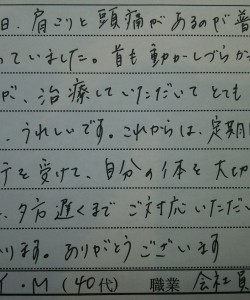 日、肩こりと頭痛があるのが普
っていました。首も動かしづらか
が、治療していただいてとても
、うれしいです。これからは、定期
テを受けて、自分の体を大切
、夕方遅くまで ご対応いただい
います。ありがとうございます
Y・M（40代） 職業 会社員